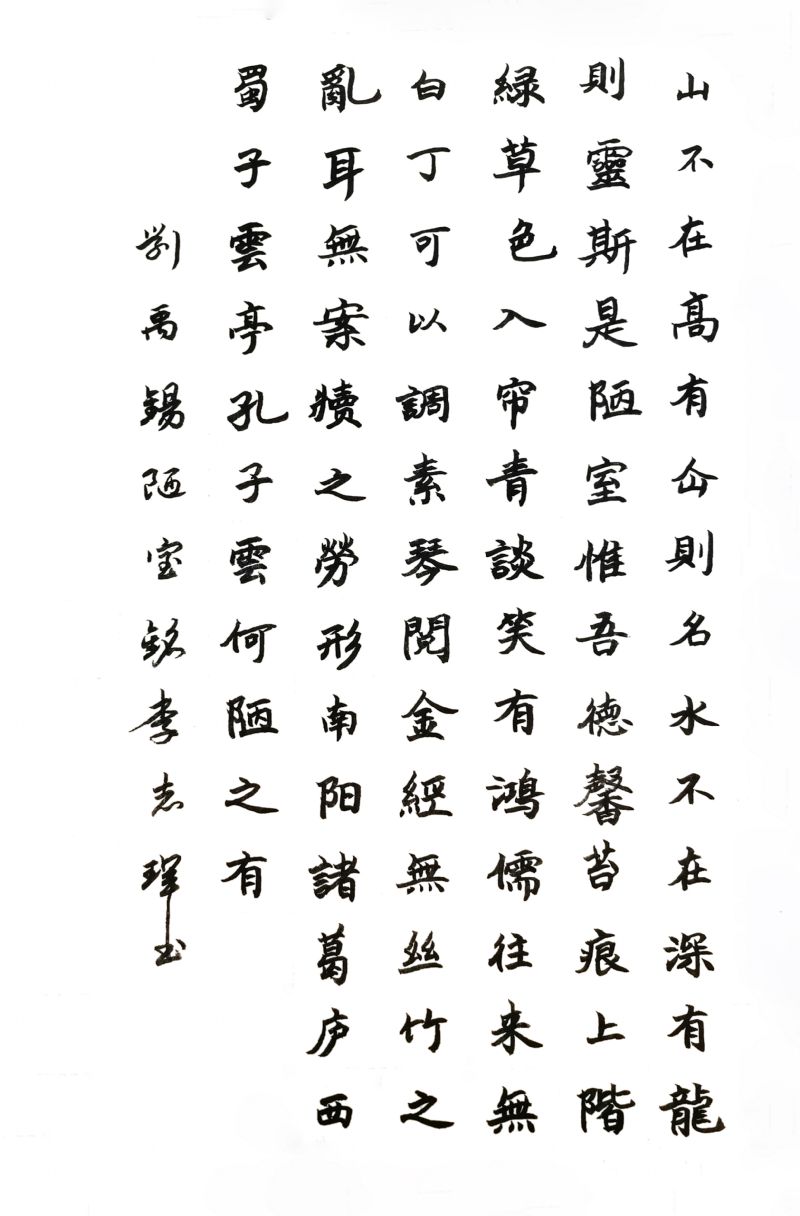 山不在髙有仚則名水不在深有龍
則靈斯是陋室惟吾德馨苔痕上階
緑草色入帘青談笑有鴻儒往来無
白丁可以調素琴閱金經無絲竹之
亂耳無案牘之勞形南阳諸葛庐西
蜀子雲亭孔子雲何陋之有
劉禹錫陋室銘李志